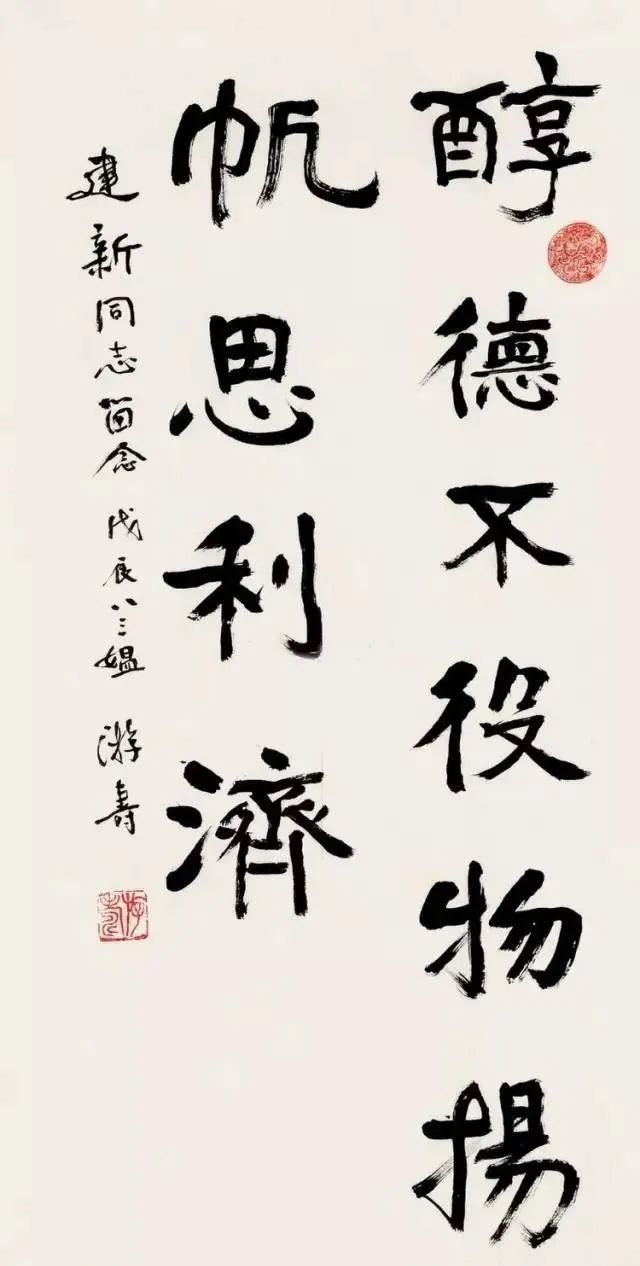 醇德不役物揚
帆思利濟
建新同志留念 戊辰八三媼 游壽